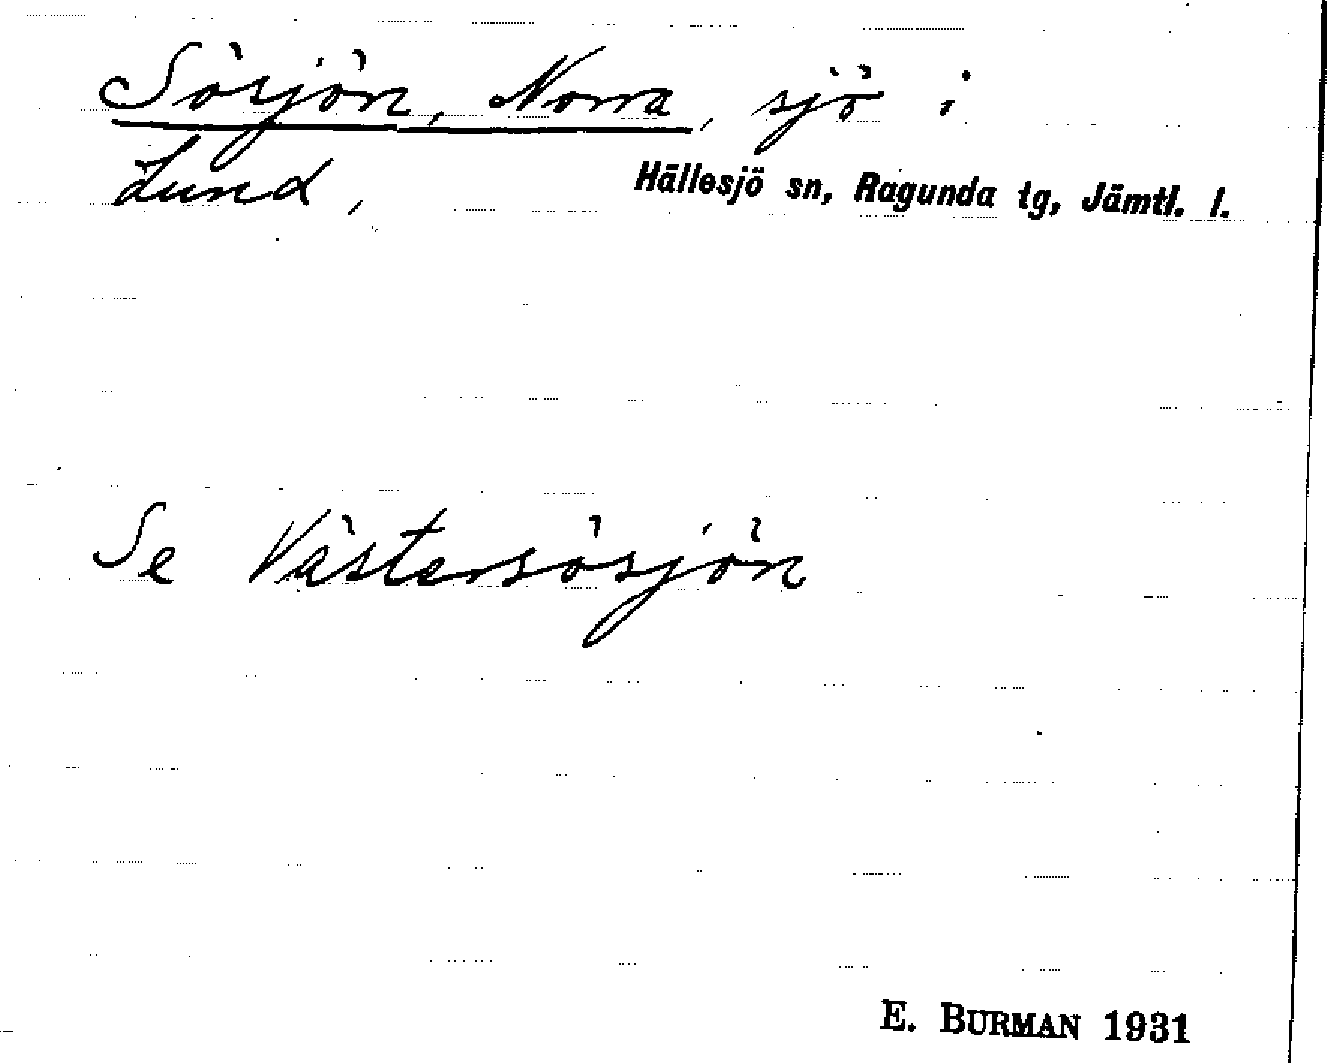 Sösjön, Norra, sjö i
Lund, Hällesjö sn, Ragunda tg, Jämtl. l.
Se Västersösjön
E. BURMAN 1931